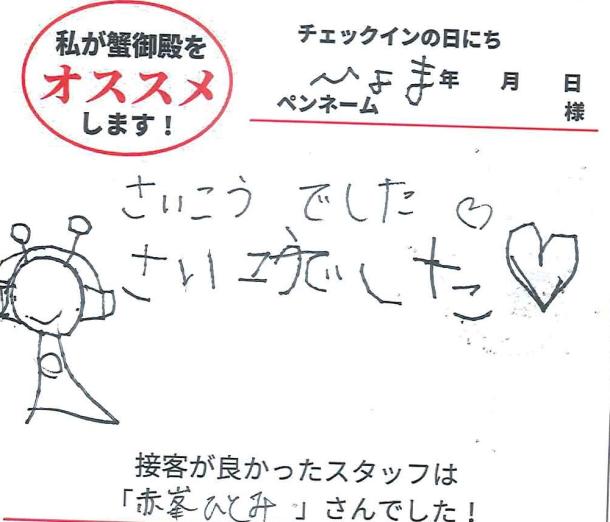 私が蟹御殿を
オススメ
します！
チェックインの日にち
年 月 日
ペンネーム
様
さいこう でした♡
さいこうでした♡
接客が良かったスタッフは
「赤峯ひとみ」さんでした！